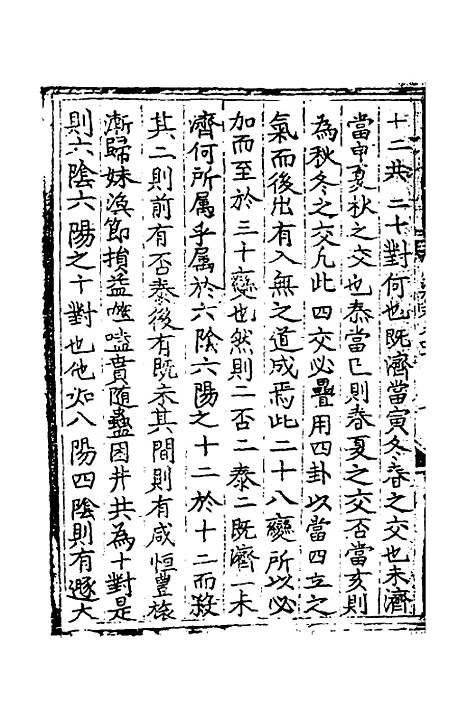 十二共二十對何也既濟當寅冬春之交也未濟
當申夏秋之交也泰當巳則春夏之交否當亥則
為秋冬之交凡此四交必疊用四卦以當四立之
氣而後出有入無之道成焉此二十八變所以必
加而至於三十變也然則二否二泰二既濟一未
濟何所属乎属於六陰六陽之十二於十二而殺
其二則前有否泰後有既未其間則有咸恒豐旅
漸歸妹渙節損益噬嗑賁隨蠱困井共為十對是
則六陰六陽之十對也他如八陽四陰則有遯大